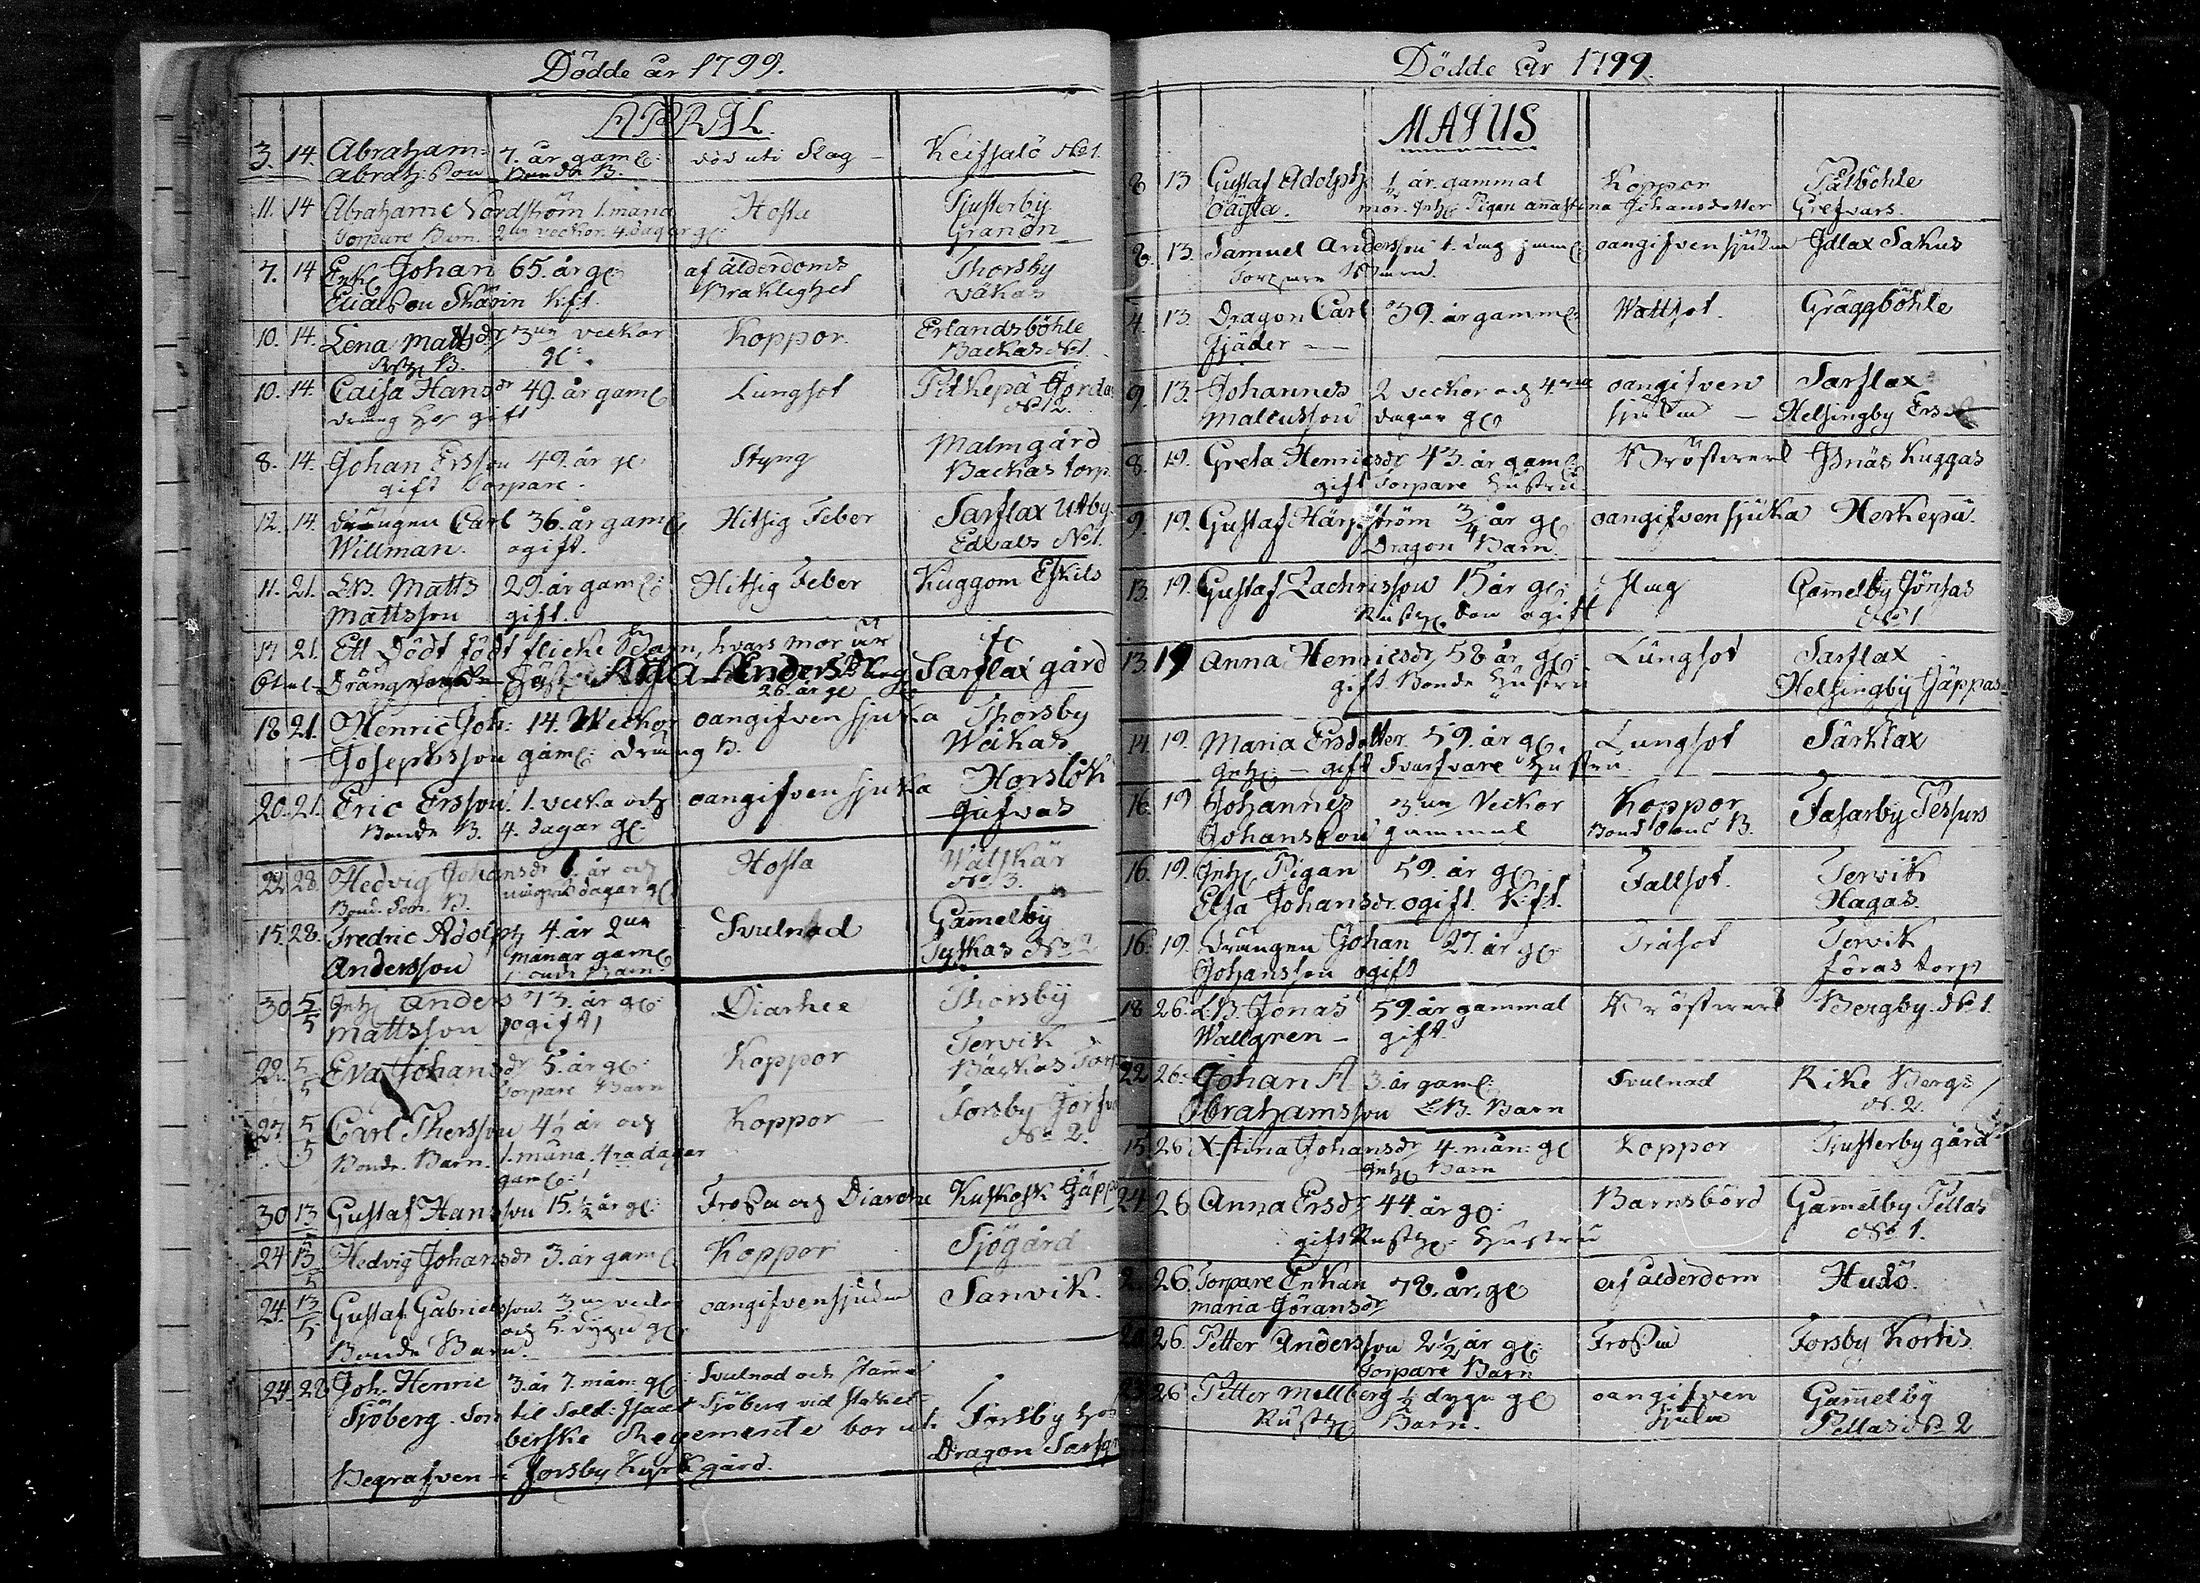 Dödde år 1799.
APRIL.
3. 14. Abraham 7. år gaml: död uti Slag Keitsalö No 1.
Abrah: Son Bonde B.
11. 14 Abraham Nordström 1. måna Hosta Tjusterby
Torpare Barn. 2 veckor. 4. dagar gl: Granön
7. 14 Johan 65. år gl: af ålderdoms Thorsby
Eliasson Skarin Bräklighet Väkas
10. 14. Lena Mattsdr 3 veckor Koppor. Erlandsböhle
B. gl: Backas No 1.
10. 14. Caisa Hansdr 49. år gaml: Lungsot Pitkepä Jorda
dräng gift No 2.
8. 14. Johan Ersson 49. år gl: Styng Malmgård
gift Torpare. Backas torp.
12. 14. drängen Carl 36. år gaml: Hitsig Feber Sarflax Utby
Willman. ogift. Edvals No 1.
11. 21. Matts 29. år gaml: Hitsig Feber Kuggom Eskils
Mattsson gift.
17 21. Ett Dödt födt flicke Barn, hvars mor är
Dräng Anders Sarflax gård
26. år gl
18 21. Henric Joh: 14. Weckor oangifven sjuka Thorsby
Josephsson gaml: dräng B. Wäkas
20. 21. Eric Ersson 1. vecka och oangifven sjuka Horslök
Bonde B. 4. dagar gl: Gufvas
22 28. Hedvig Johansdr år och Hosta Wätskär
Bond. Son. B. några dagar gl No 3.
15. 28. Fredric Adolph 4. år 2 Svulnad Gamelby
Andersson månar gaml: Tyskas No 2
Barn
30 5/5 Anders 73. år gl: Diarhee Thorsby
Mattsson ogift
22. 5/5 Eva Johansdr 5. år gl: Koppor Tervik
Torpare Barn Backas Torp
27 5/5 Carl Thersson 4½ år och Koppor Forsby
Bonde Barn. 1. måna. 4ra dagar No 2.
gaml:
30 13/5 Gustaf Hansson 15.½ år gl: Frossa och Diarehe Kuskosk Jäpp
24 13/5 Hedvig Johansdr 3. år gaml Koppor Sjögård
24. 13/5 Gustaf Gabrielsson 3 veckor oangifven sjukdm Sarvik.
Bonde Barn. och 5. dygn gl:
24. 28 Joh. Henric 3. år 7. mån: gl: Svulnad och
Sjöberg. Son til Sold: Sjöberg vid
berske Regemente bor uti Forsby hos
Dragon
Begrafven i Forsby Kyrk gård.
Dödde år 1799.
MAJUS
8 13 Gustaf Adolph ½ år gammal Koppor Pålböhle
mor. Inh: Pigan Anastina Johansdotter Grefvars.
8. 13. Samuel Andersson 1. dag gaml: oangifven sjukdm Idlax Sakus
Torpare Barn.
4. 13. Dragon Carl 39. år gamml: Wattsot. Gräggböhle
Fjäder
9. 13. Johannes 2 veckor och 4 oangifven Sarflax
Mattsson dagar gl: sjukdm Helsingby Ers
8. 19. Greta Henricsdr 43. år gaml: Bröstverk Isnäs Kuggas
gift Torpare Hustru
9. 19. Gustaf Härgström ¾ år gl oangifven sjuka Herkepä.
Dragon Barn.
13. 19. Gustaf Zachrisson 15 år gl: slag Gamelby Jönsas
Rusth: Son ogift No 1
13 19 Anna Henricsdr 58 år gl: Lungsot Sarflax
gift Bonde Hustru Helsingby Jäppas
14. 19. Maria Ersdotter 59. år gl. Lungsot Särklax
Inh: gift Svarfvare Hustru.
16. 19 Johannes 3 Veckor Koppor Fasarby Tessurs
Johansson gammal Bond Sons B.
16. 19. Inh: Pigan 59. år gl: Fallsot. Tervik
Elsa Johansdr. ogift. Kift. Hagas.
16. 19. drängen Johan 27. år gl Tråsot Tervik
Johansson ogift torp
18 26. L:B. Jonas 59. år gammal Bröstverk Bergby No 1.
Wallgren gift.
22 26. Johan A 3. år gaml: Svulnad Rike Bergs
Abrahamsson L:B. Barn N. 2.
15 26 X-stina Johansdr 4. mån: gl Koppor Tjusterby gård
Inh: Barn
24 26 Anna Ersdr 44. år gl: Barnsbörd Gamelby Pellas
gift Rusth: Hustru No 1.
26. Torpare Enkan 78. år. gl af ålderdom Hudö.
Maria Göransdr
26. Petter Andersson 2½ år gl: Frossa Forsby Kortis
Torpare Barn
26 Petter Mellberg ½ dygn gl oangifven Gamelby
Rusth: Barn. sjukd Pellas No 2